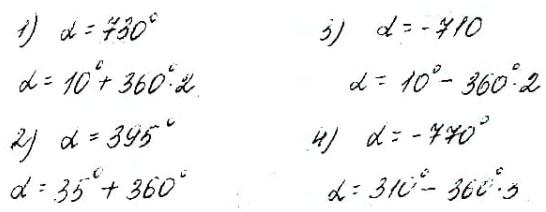 1) α = 730°
α = 10° + 360°·2
2) α = 395°
α = 35° + 360°
3) α = -710
α = 10° - 360°·2
4) α = -770°
α = 310° - 360°·3